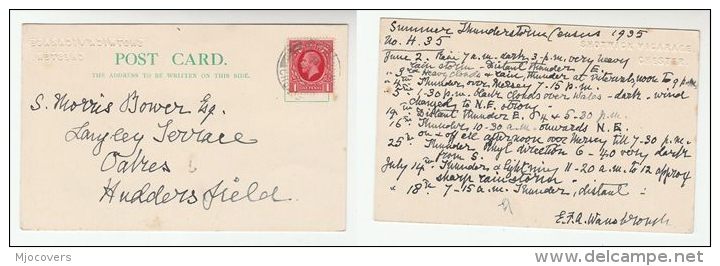 SHOTWICK VICARAGE,
CHESTER.
POST CARD.
THE ADDRESS TO BE WRITTEN ON THIS SIDE.
S. Morris Bower Esq.
Langley Terrace
Oakes
Huddersfield
Mjocovers
Summer Thunderstorm Census 1935
No. H. 35
SHOTWICK VICARAGE,
CHESTER.
June 2. Rain 7 a.m. dark 3 p.m. very heavy
rain storm - distant thunder 15
" 3rd Heavy clouds & rain, thunder at intervals noon to 9 p.m.
" 4th Thunder over Mersey 7-15 p.m.
" 5th 1-30 p.m. black clouds over Wales - dark - wind
changed to N.E. strong.
19th Distant Thunder E. & 4 & 5-30 p.m.
16th Thunder 10-30 a.m. onwards N.E.
on & off all afternoon over Mersey till 7-30 p.m.
25th Thunder Rhyl direction 6-40 very dark
from S.
July 14th Thunder & lightning 11-20 a.m. to 12 approx
sharp rainstorm
" 18th 7-15 a.m. Thunder, distant.
E.T.A. Wansbrough
delcampe.net